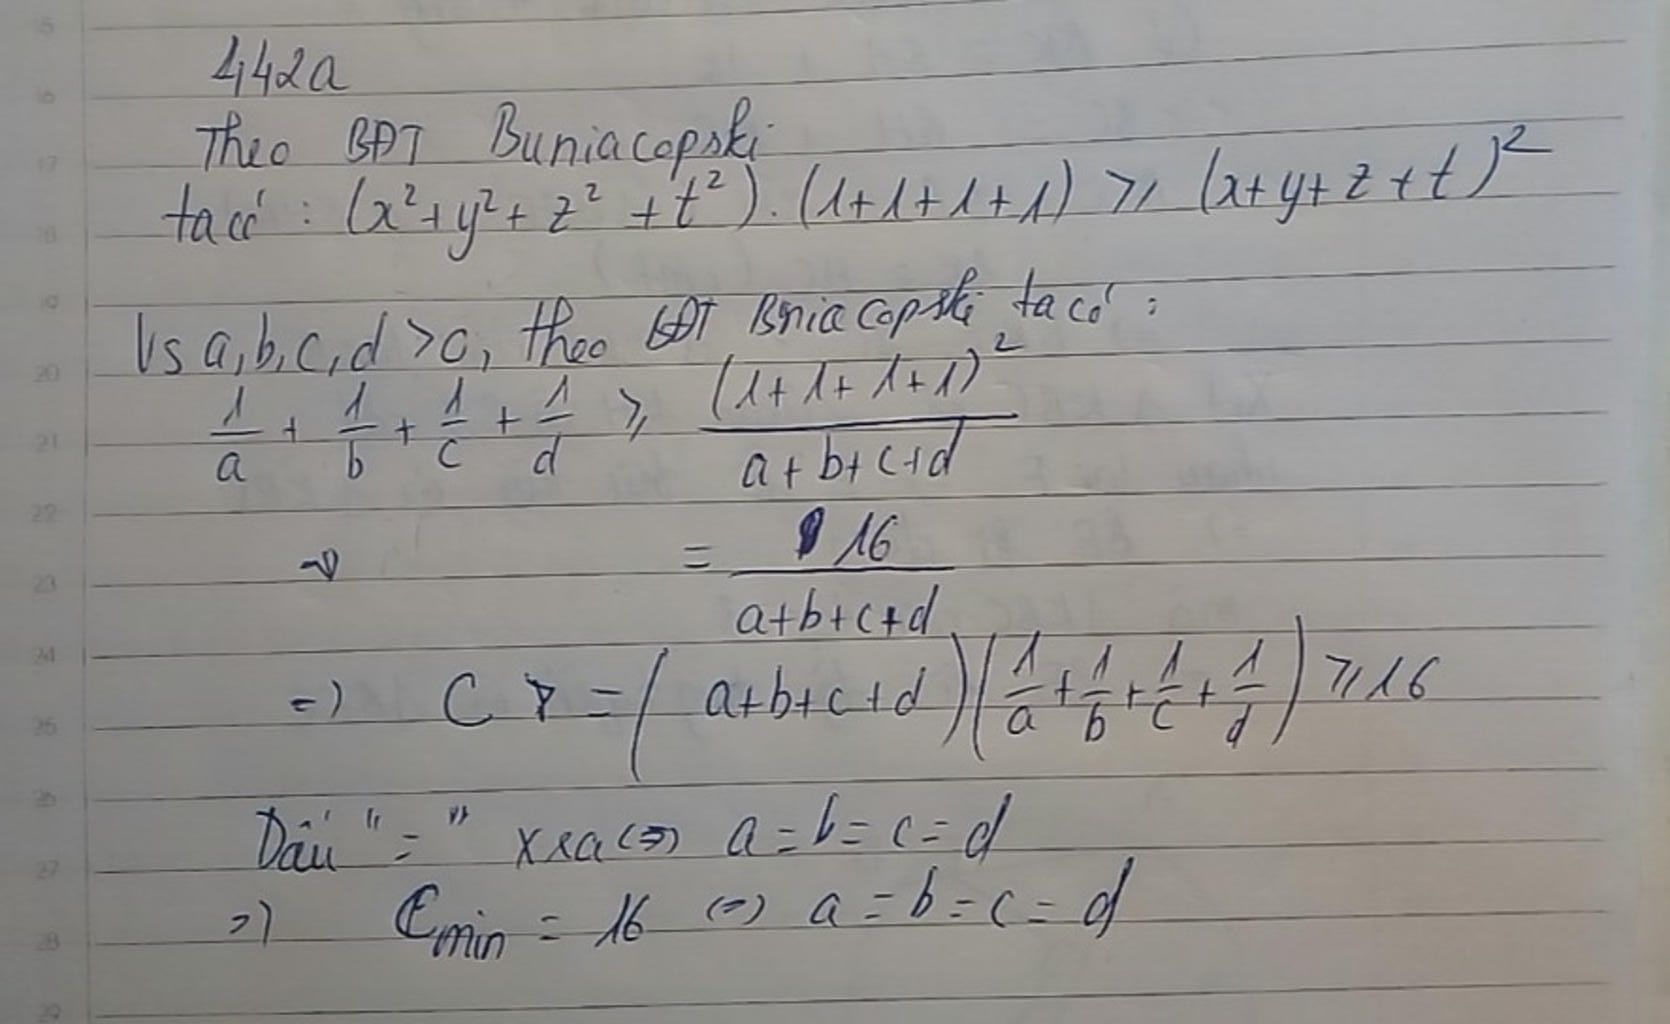 4,42a
Theo BĐT Buniacopski
ta có : (x² + y² + z² + t²) . (1+1+1+1) ⩾ (x+y+z+t)²
Vs a,b,c,d >0, theo BĐT Bniacopski ta có :
1/a + 1/b + 1/c + 1/d ⩾ (1+1+1+1)² / (a+b+c+d)
= 16 / (a+b+c+d)
=) C = (a+b+c+d)(1/a + 1/b + 1/c + 1/d) ⩾ 16
Dấu "=" xra (=) a = b = c = d
=) Cmin = 16 (=) a = b = c = d